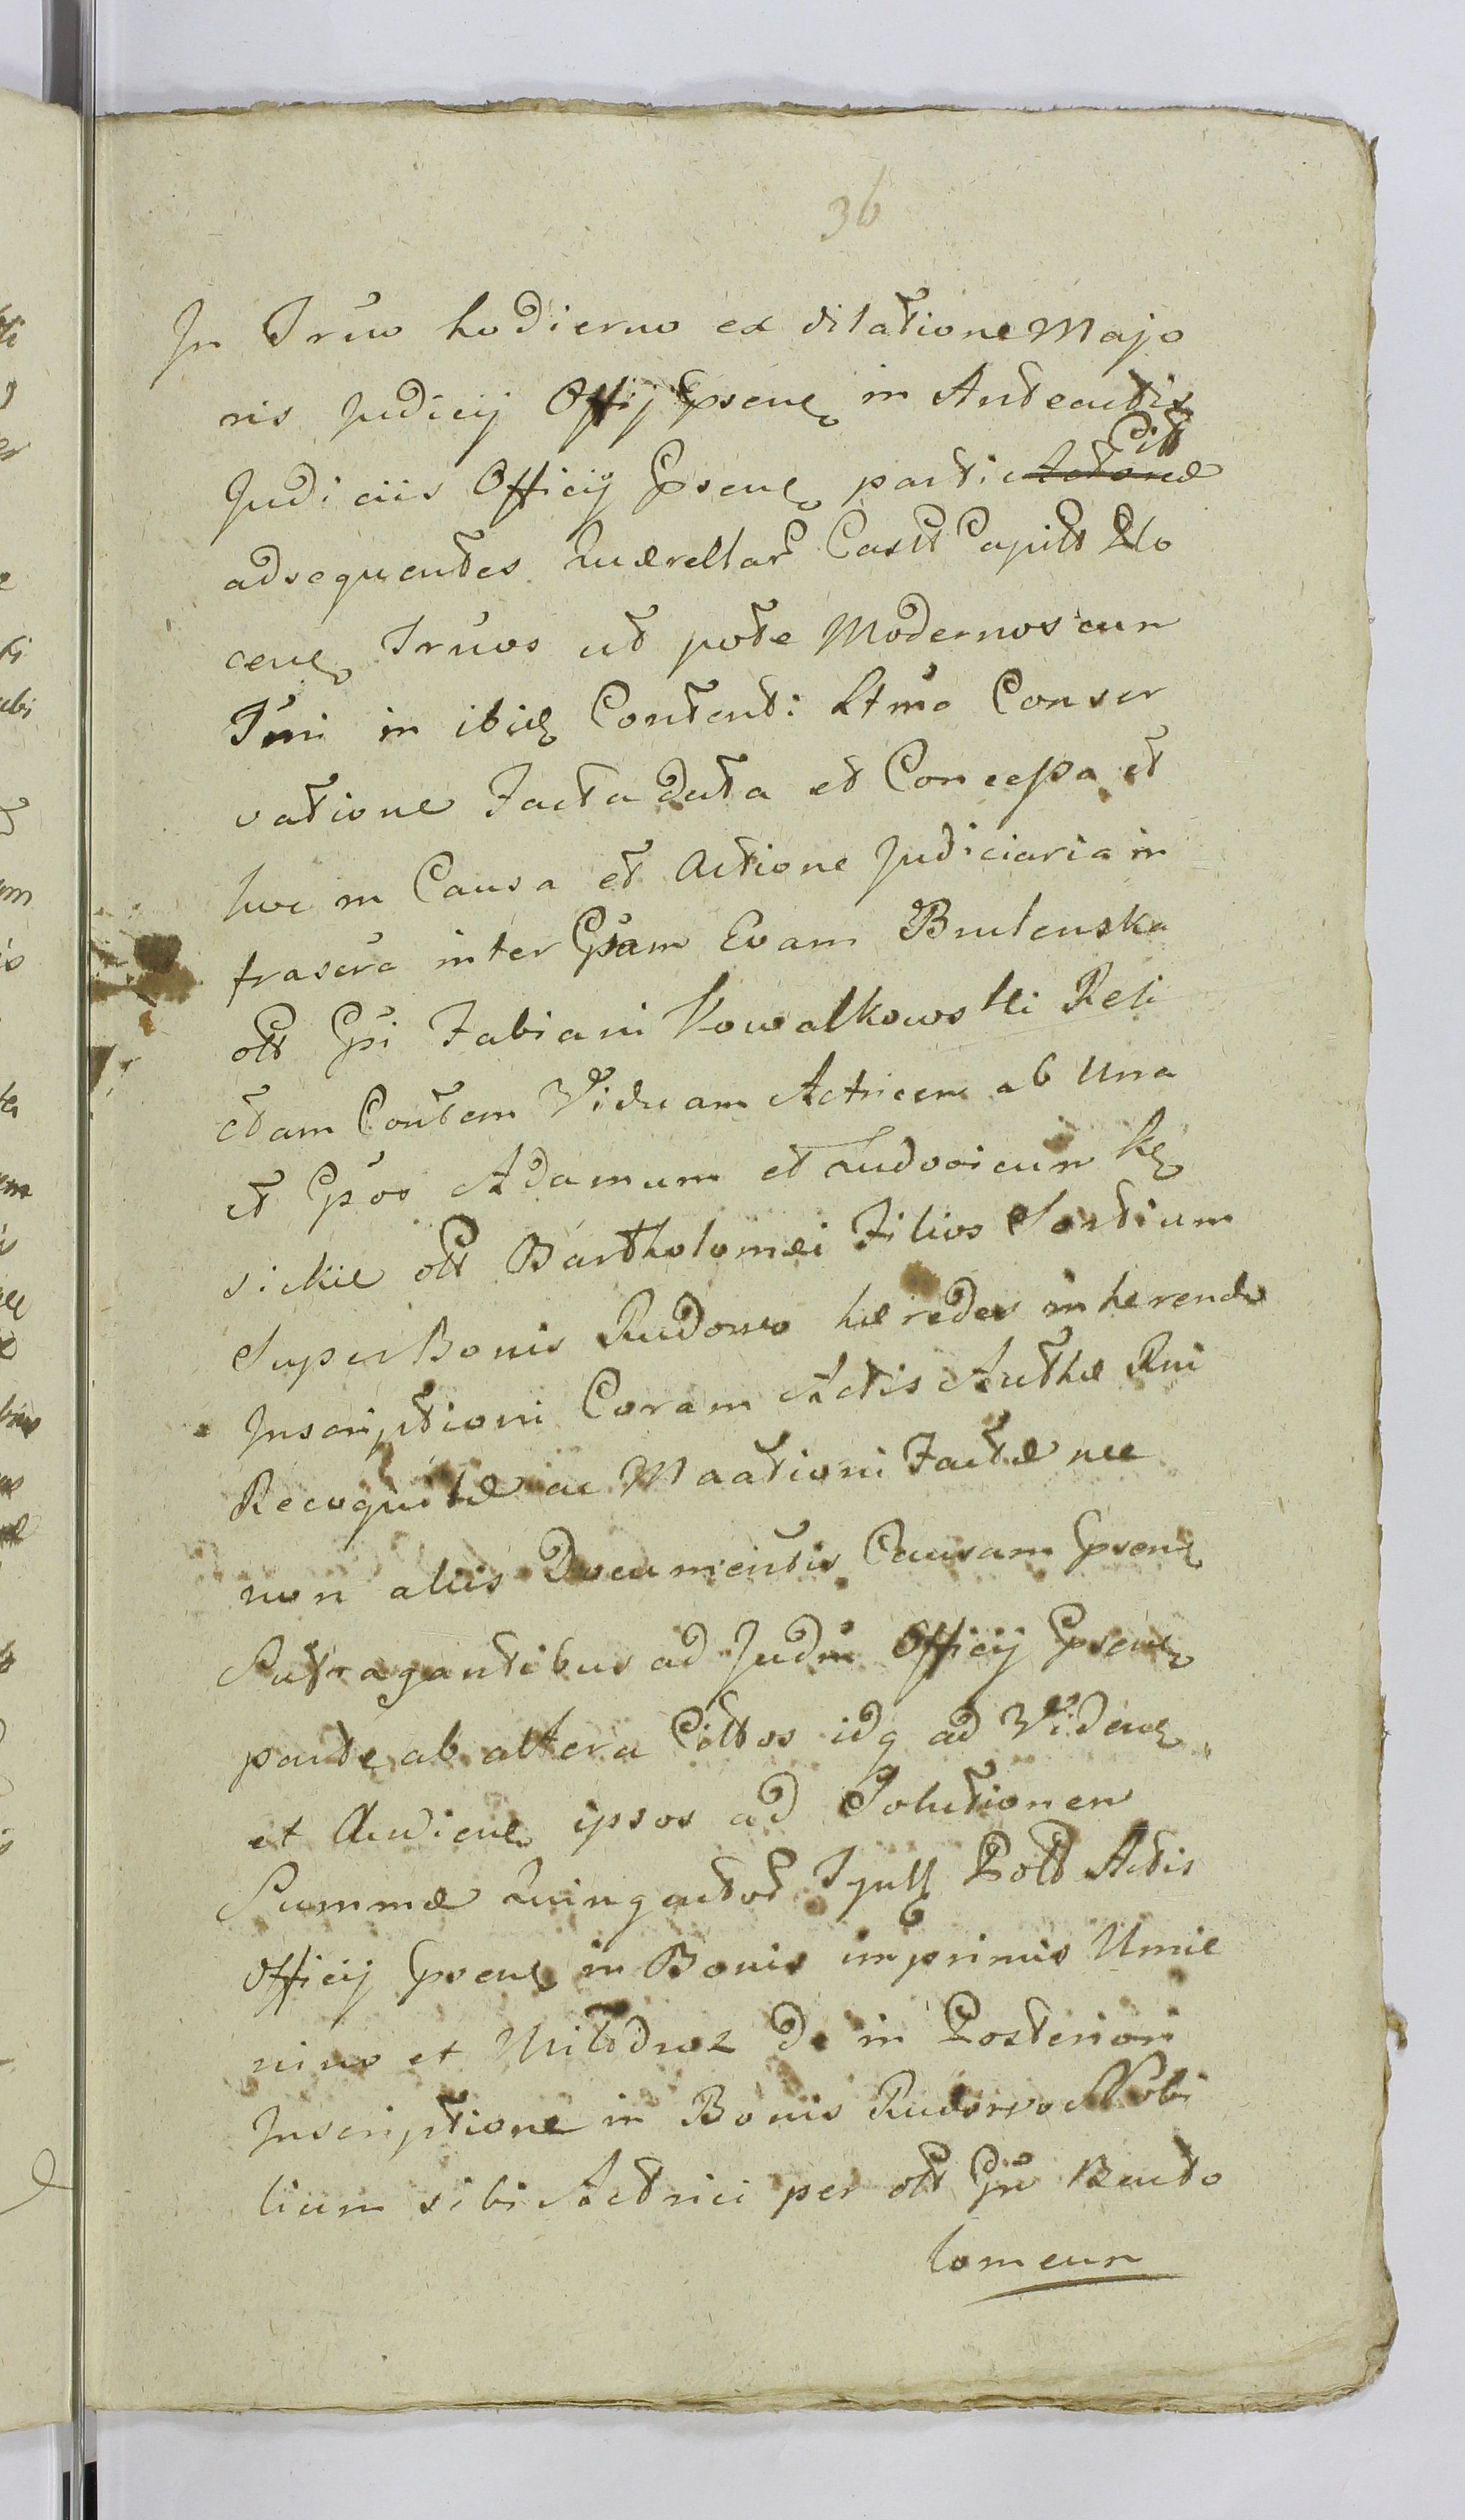 36
In Trño hodierno ex dilatione Majo
ris Judicij Offij Gpsene in Anteactis
Judiciis Officij Gpsene parti Actorea Citt
adsequentes Quærellar Castr Capitt Plo
cene Trños ut pote Modernos cum
Tmi in ibid Content: Ltma Conser
vatione Facta data et Concessa et
huc in Causa et Actione Judiciaria in
frascra inter Gsam Evam Brulenska
olt Gsi Fabiani Kowalkowski Reli
ctam Contem Viduam Actricem ab una
et Gsos Adamum et Ludovicum Kę
sickie olt Bartholomei Filios Sortium
Super Bonis Rudowo hæredes inherendo
Inscriptioni Coram Actis Authæ Rni
Recognitæ ac Maationi Factæ nec
non aliis Documentis Causam Gpsene
Sufragantibus ad Judm Officij Gpsene
parte ab altera Cittos idq ad Videne
et Audiene ipsos ad Solutionem
Summæ Quingentor Tynff Poll Actis
Officij Gpsene in Bonis imprimis Umie
nino et Milodroz de in Posteriori
Inscriptione in Bonis Rudowo Nobi
lium sibi Actrici per olt Gm Barto
lomeum